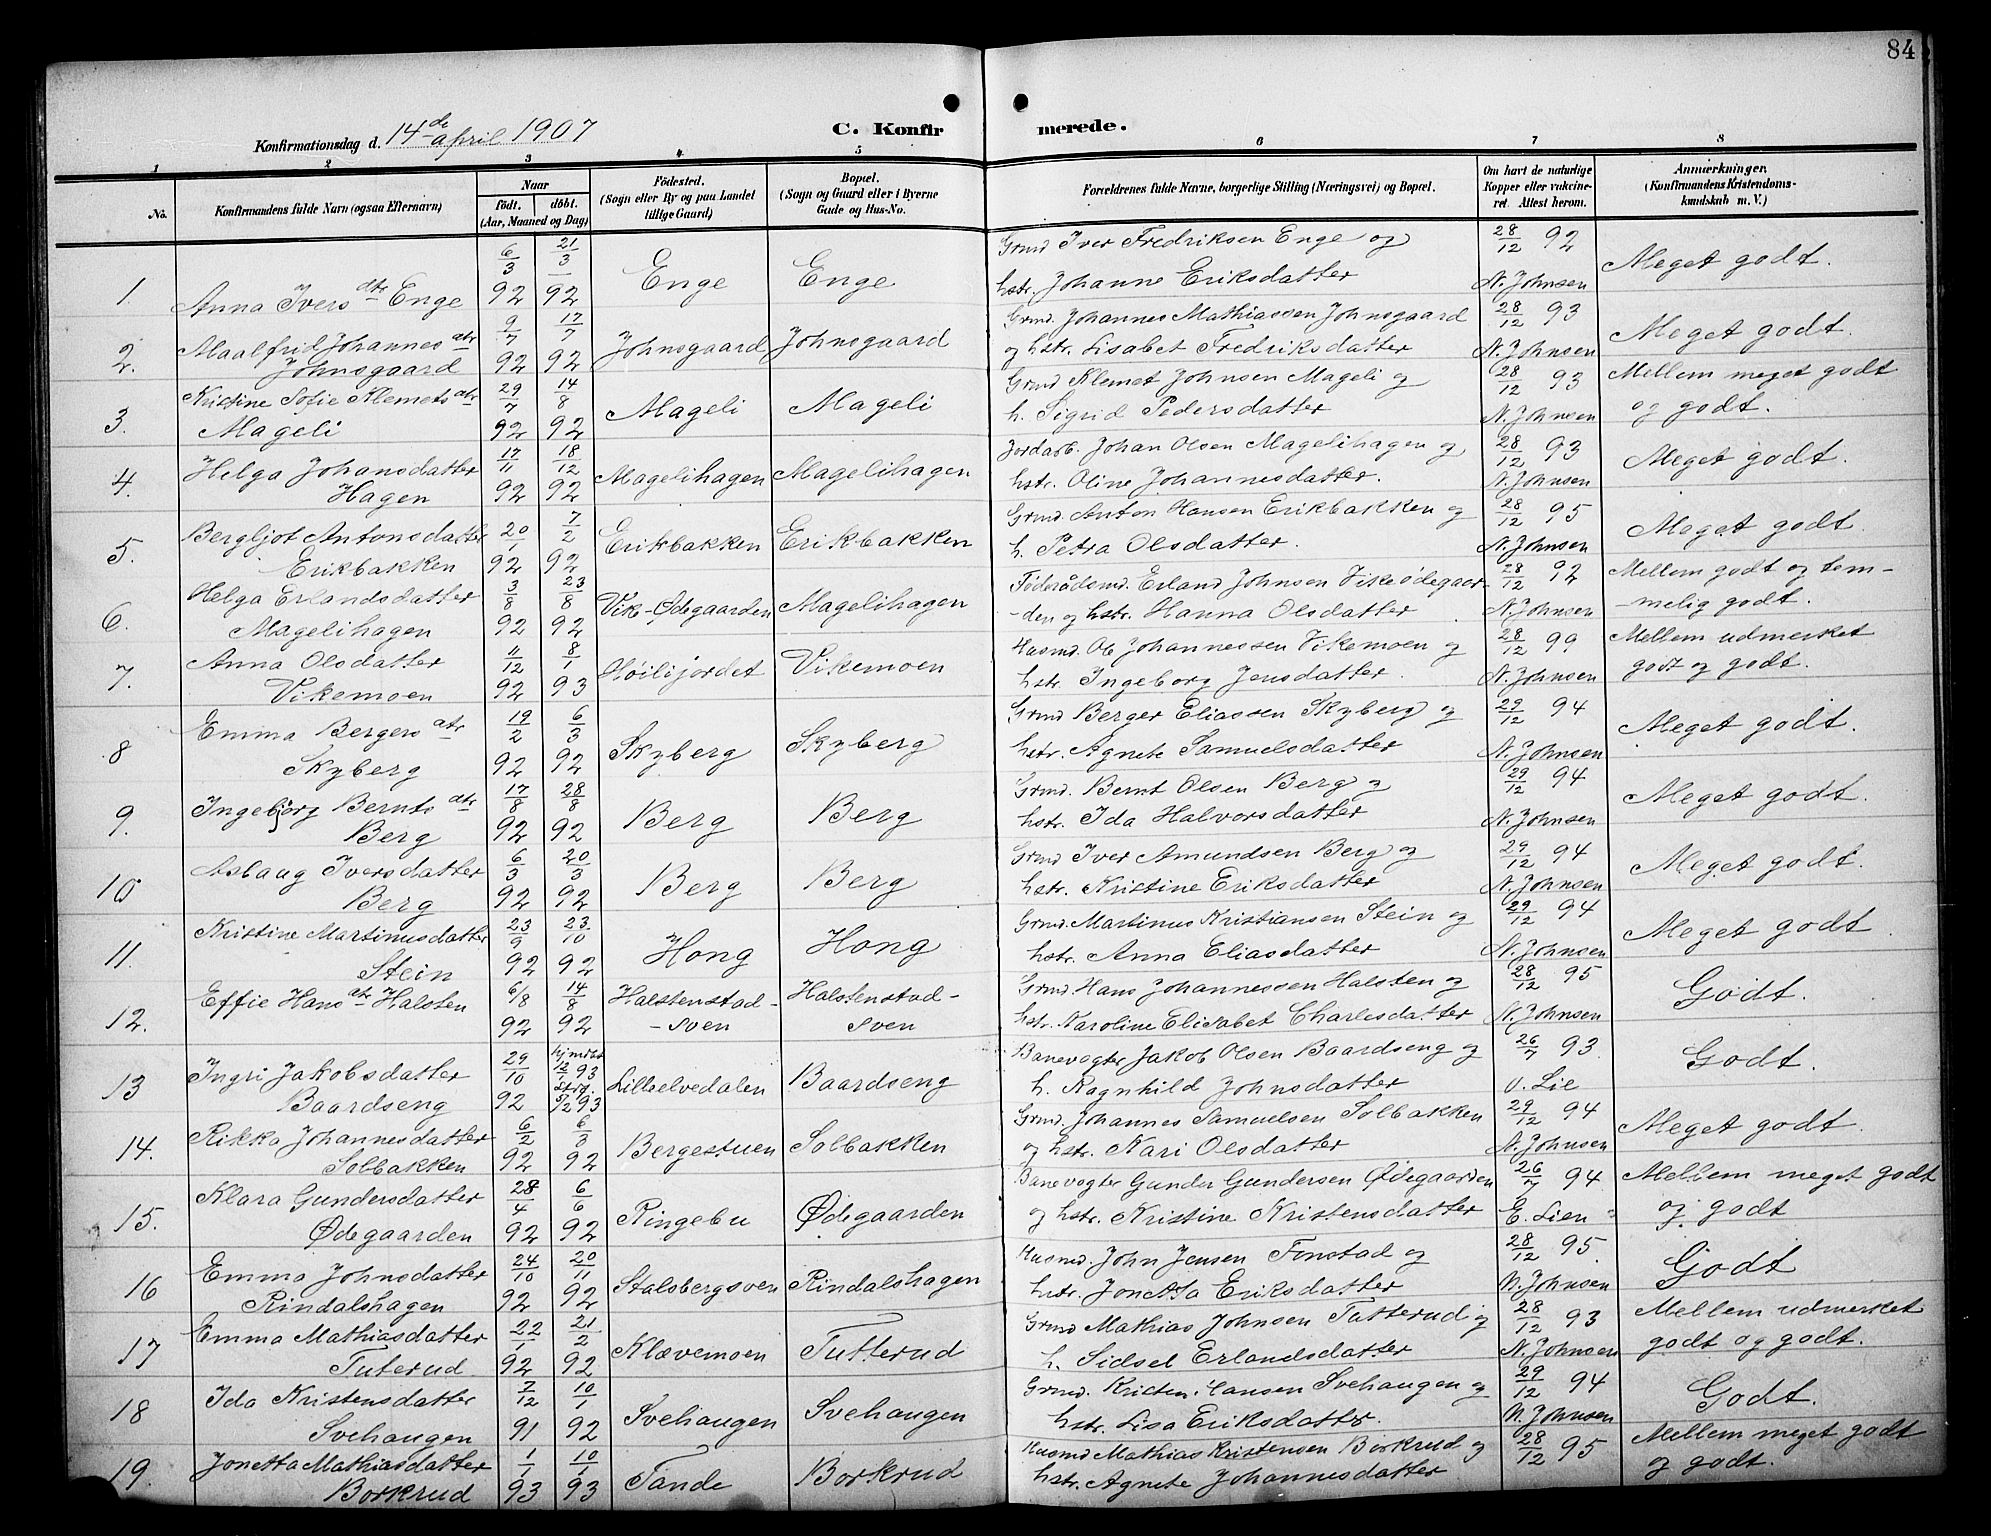 84
Konfirmationsdag d. 14de april 1907
C. Konfirmerede.
1 2 3 4 5 6 7 8
No.
Konfirmandens fulde Navn (ogsaa Efternavn)
Naar
födt. döbt.
(Aar, Maaned og Dag)
Födested.
(Sogn eller By og paa Landet
tillige Gaard)
Bopæl.
(Sogn og Gaard eller i Byerne
Gade og Hus-No.
Forældrenes fulde Navne, borgerlige Stilling (Næringsvei) og Bopæl.
Om havt de naturlige
Kopper eller vakcine-
ret. Attest herom.
Anmærkninger.
(Konfirmandens Kristendoms-
kundskab m. V.)
1. Anna Ivers dtr Enge 6/3 92 21/3 92 Enge Enge Grmd Iver Fredriksen Enge og
hstr. Johanne Eriksdatter 28/12 92 N. Johnsen Meget godt.
2. Maalfrid Johannes dtr
Johnsgaard 9/7 92 17/7 92 Johnsgaard Johnsgaard Grmd. Johannes Mathiassen Johnsgaard
og hstr. Lisabet Fredriksdatter 28/12 93 N. Johnsen Meget godt.
3. Kristine Sofie Klemets dtr
Mageli 29/7 92 14/8 92 Mageli Mageli Grmd Klemet Johnsen Mageli og
h. Sigrid Pedersdatter 28/12 93 N. Johnsen Mellem meget godt
og godt.
4. Helga Johansdatter
Hagen 17/11 92 18/12 92 Magelihagen Magelihagen Jordarb. Johan Olsen Magelihagen og
hstr. Oline Johannesdatter. 28/12 93 N. Johnsen Meget godt.
5. Bergljot Antonsdatter
Erikbakken 20/1 92 7/2 92 Erikbakken Erikbakken Grmd. Anton Hansen Erikbakken og
h. Petra Olsdatter. 28/12 95 N. Johnsen Meget godt.
6. Helga Erlandsdatter
Magelihagen 3/8 92 23/8 92 Vik-Ødegaarden Magelihagen Føderådsmd. Erland Johnsen Vikeødegaar-
-den og hstr. Hanna Olsdatter 28/12 92 N. Johnsen Mellem godt og tem-
-melig godt.
7. Anna Olsdatter
Vikemoen 11/12 92 8/1 93 Høilijordet Vikemoen Husmd. Ole Johannessen Vikemoen og
hstr. Ingeborg Jensdatter. 28/12 99 N. Johnsen Mellem udmerket
godt og godt.
8 Emma Bergers dtr
Skyberg 19/2 92 6/3 92 Skyberg Skyberg Grmd Berger Eliassen Skyberg og
hstr. Agnete Samuelsdatter 29/12 94 N. Johnsen Meget godt.
9. Ingebjörg Bernts dtr
Berg 17/8 92 28/8 92 Berg Berg Grmd. Bernt Olsen Berg og
hstr. Ida Halvorsdatter 29/12 94 N. Johnsen Meget godt.
10 Aslaug Iversdatter
Berg 6/3 92 20/3 92 Berg Berg Grmd Iver Amundsen Berg og
hstr. Kristine Eriksdatter 29/12 94 N. Johnsen Meget godt.
11. Kristine Martinusdatter
Stein 23/9 92 23/10 92 Hong Hong Grmd. Martinus Kristiansen Stein og
hstr. Anna Eliasdatter 29/12 94 N. Johnsen Meget godt.
12. Effie Hans dtr Halsten 6/8 92 14/8 92 Halstenstad-
-sven Halstenstad-
sven Grmd. Hans Johannessen Halsten og
hstr. Naroline Elisabet Charlesdatter 28/12 95 N. Johnsen Godt.
13 Ingri Jakobsdatter
Baardseng 29/10 92 hjmdbt 12/1 93 5/2 93 Lillaelvedalen Baardseng Banevogter Jakob Olsen Baardseng og
h. Ragnhild Johnsdatter 26/7 93 O. Lie Godt.
14. Rikka Johannesdatter
Solbakken 6/2 92 6/3 92 Bergestuen Solbakken Grmd. Johannes Samuelsen Solbakken
og hstr. Kari Olsdatter 29/12 94 N. Johnsen Meget godt.
15. Klara Gundersdatter
Ødegaarden 28/4 92 6/6 92 Ringebu Ødegaarden Banevogter Gunder Gundersen Ødegaarden
og hstr. Kristine Kristensdatter 26/7 94 E. Lien Mellem meget godt
og godt
16 Emma Johnsdatter
Rindalshagen 24/10 92 20/11 92 Stalsbergsven Rindalshagen Husmd. John Jensen Finstad og
hstr. Jonetta Eriksdatter 28/12 95. N. Johnsen Godt
17 Emma Mathiasdatter
Tuterud 22/1 92 21/2 92 Klævemoen Tutterud Grmd Mathias Johnsen Tutterud og
h. Sidsel Erlandsdatter 28/12 93 N. Johnsen Mellem udmerket
godt og godt.
18 Ida Kristensdatter
Svehaugen 7/12 91 10/1 92 Svehaugen Svehaugen Grmd. Kristen Hansen Svehaugen og
hstr. Lisa Eriksdatter. 29/12 94 N. Johnsen Godt.
19 Jonetta Mathiasdatter
Borkrud 1/1 93 10/1 93 Tande Borkrud Husmd Mathias Kristensen Borkrud og
hstr. Agnete Johannesdatter 28/12 95 Mellem meget godt
og godt.